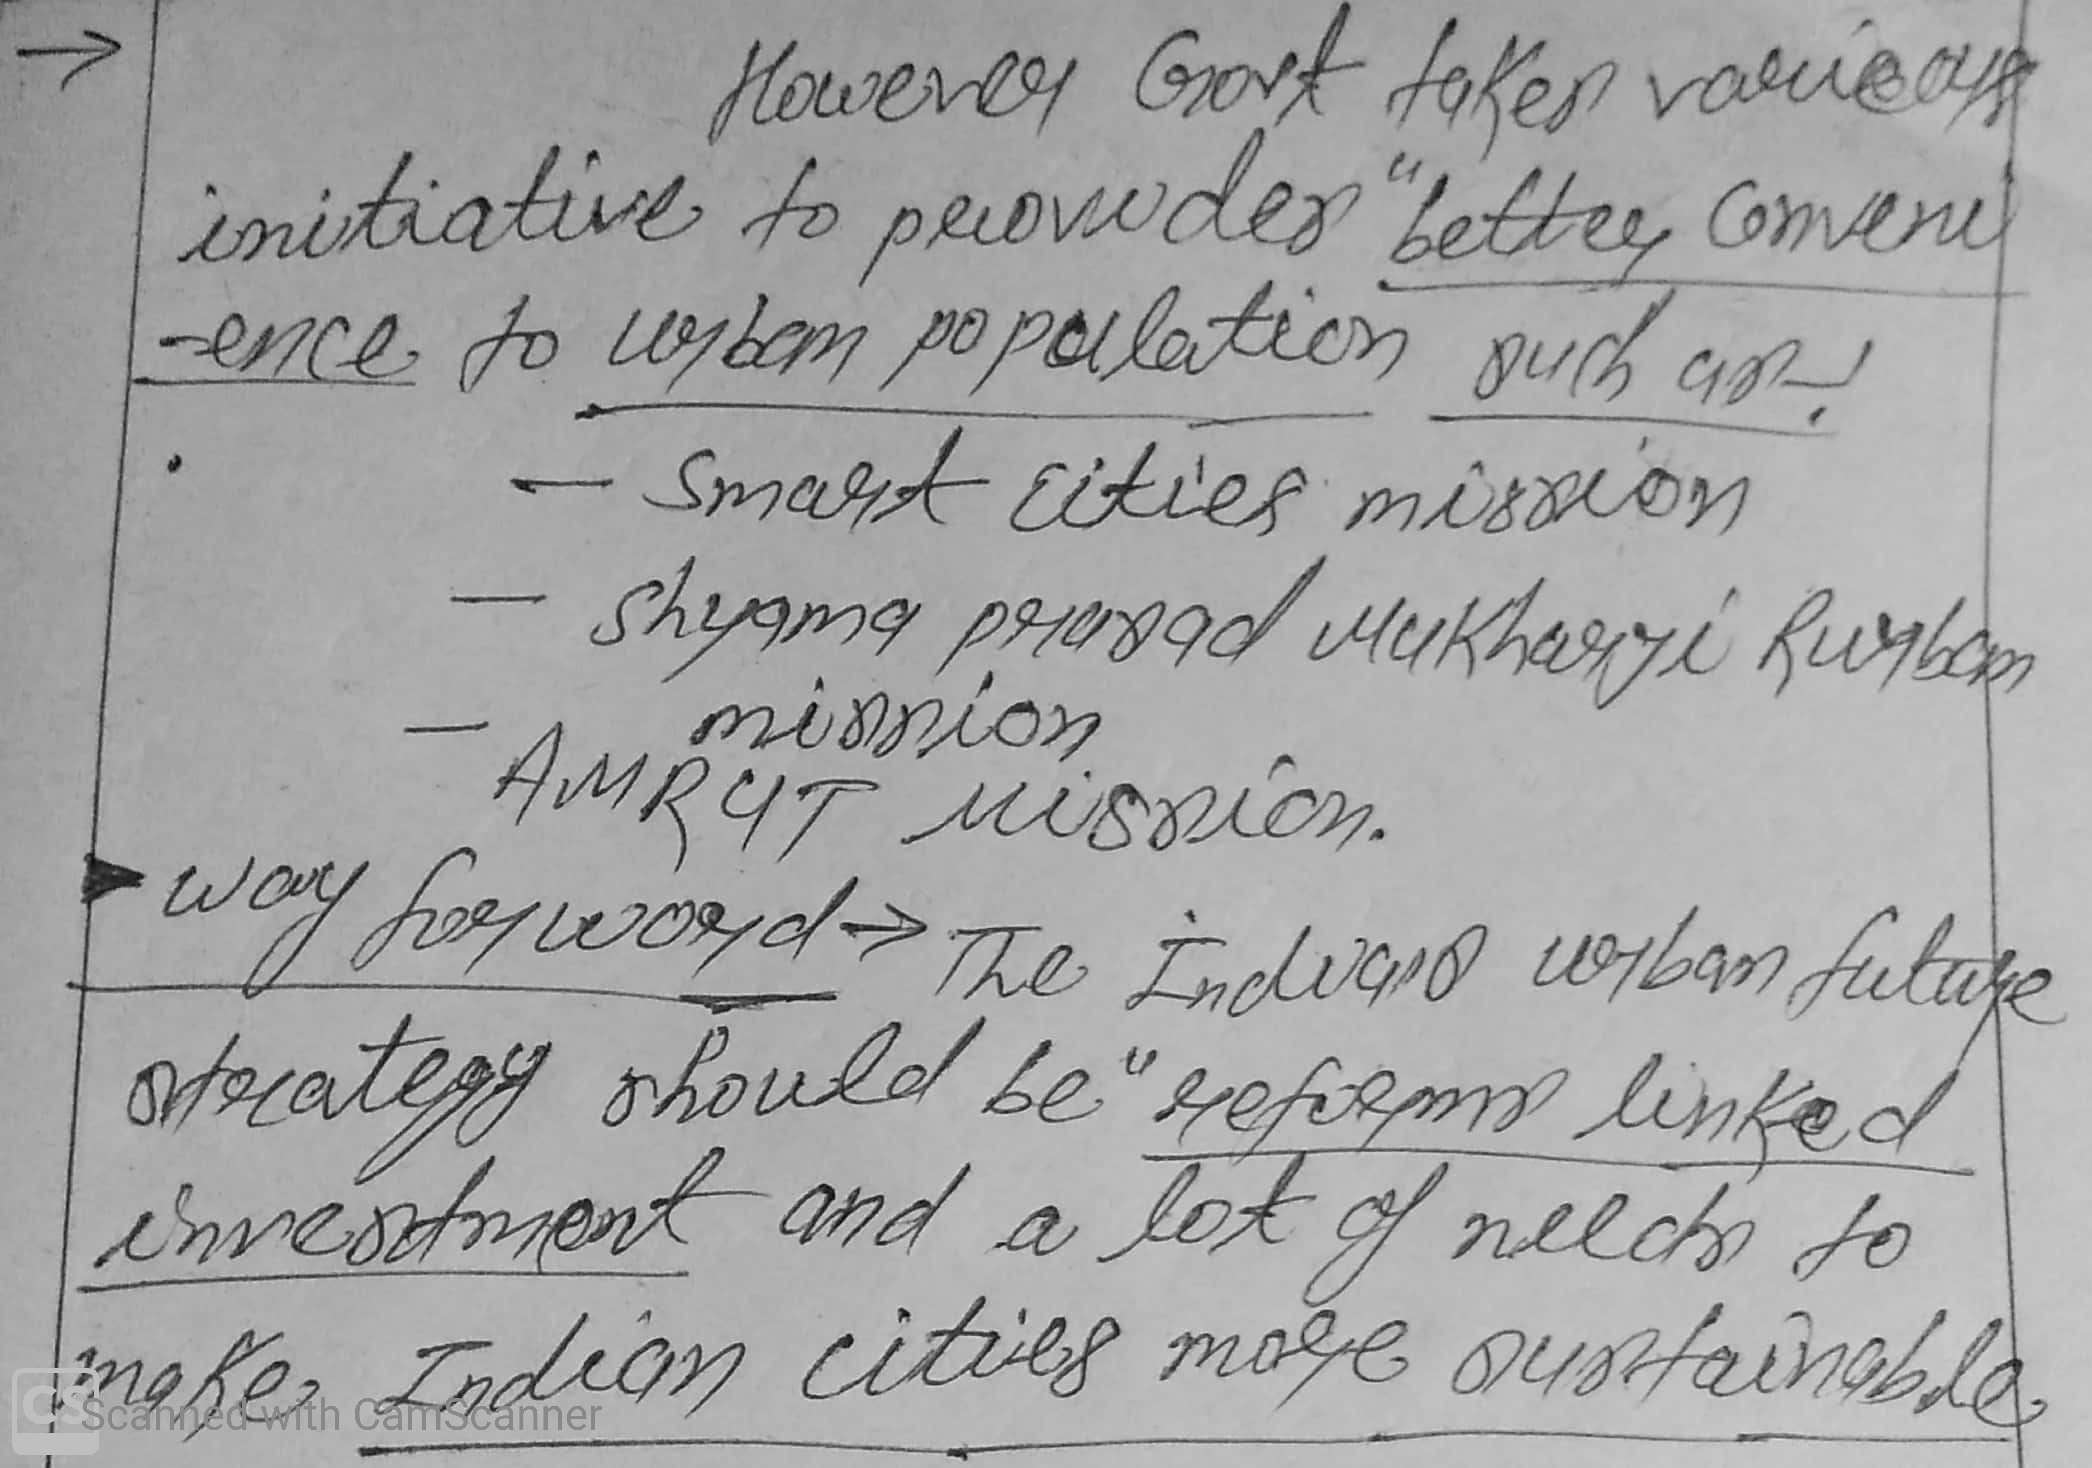 → However Govt takes various
initiative to provides "better conveni
-ence to urban population such as:-
- Smart cities mission
- Shyama prasad Mukharji Rurban
mission
- AMRUT Mission.
▶ Way forword → The Indians urban future
strategy should be "reforms linked
investment and a lot of needs to
make Indian cities more sustainable
CS Scanned with CamScanner